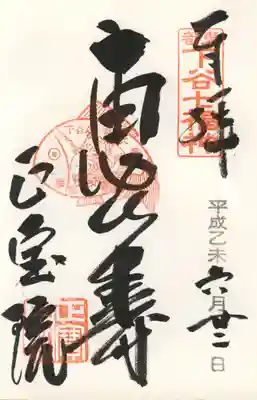 奉拝
下谷七福神
平成乙未六月廿二日
恵比寿
正宝院